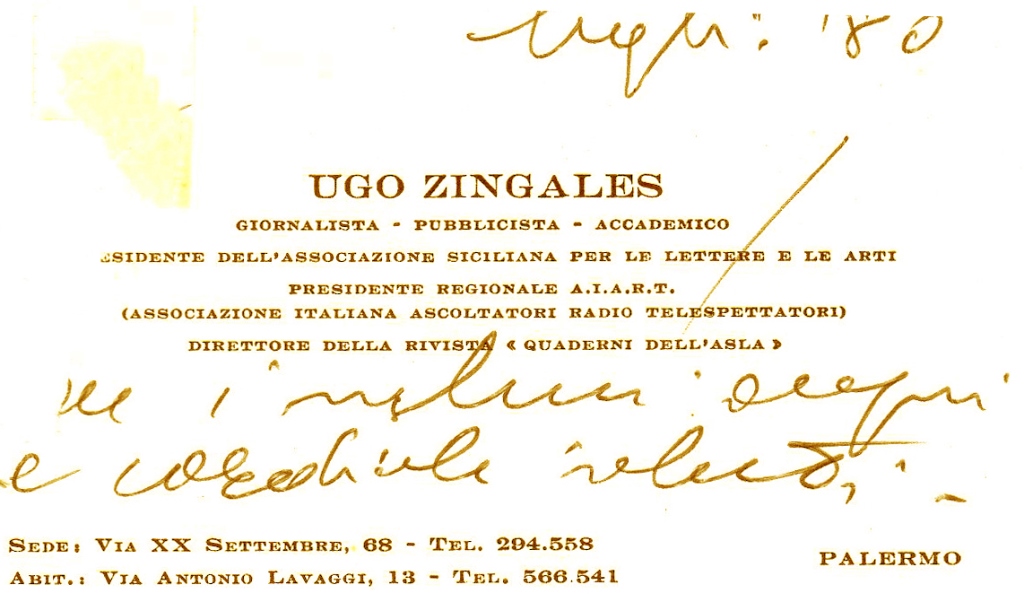 '80
UGO ZINGALES
GIORNALISTA - PUBBLICISTA - ACCADEMICO
ESIDENTE DELL'ASSOCIAZIONE SICILIANA PER LE LETTERE E LE ARTI
PRESIDENTE REGIONALE A.I.A.R.T.
(ASSOCIAZIONE ITALIANA ASCOLTATORI RADIO TELESPETTATORI)
DIRETTORE DELLA RIVISTA « QUADERNI DELL'ASLA »
i migliori auguri
e cordiali saluti,
SEDE: VIA XX SETTEMBRE, 68 - TEL. 294.558
ABIT.: VIA ANTONIO LAVAGGI, 13 - TEL. 566.541
PALERMO